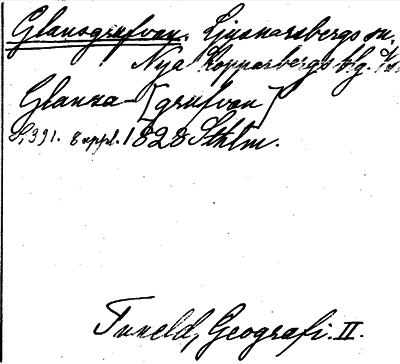 Glansgrufvan. Ljusnarsbergs sn.
Nya Kopparbergs blg.
Glansa- [grufvan]
S, 391. 8 uppl. 1828 Sthlm.
Tuneld, Geografi. II.